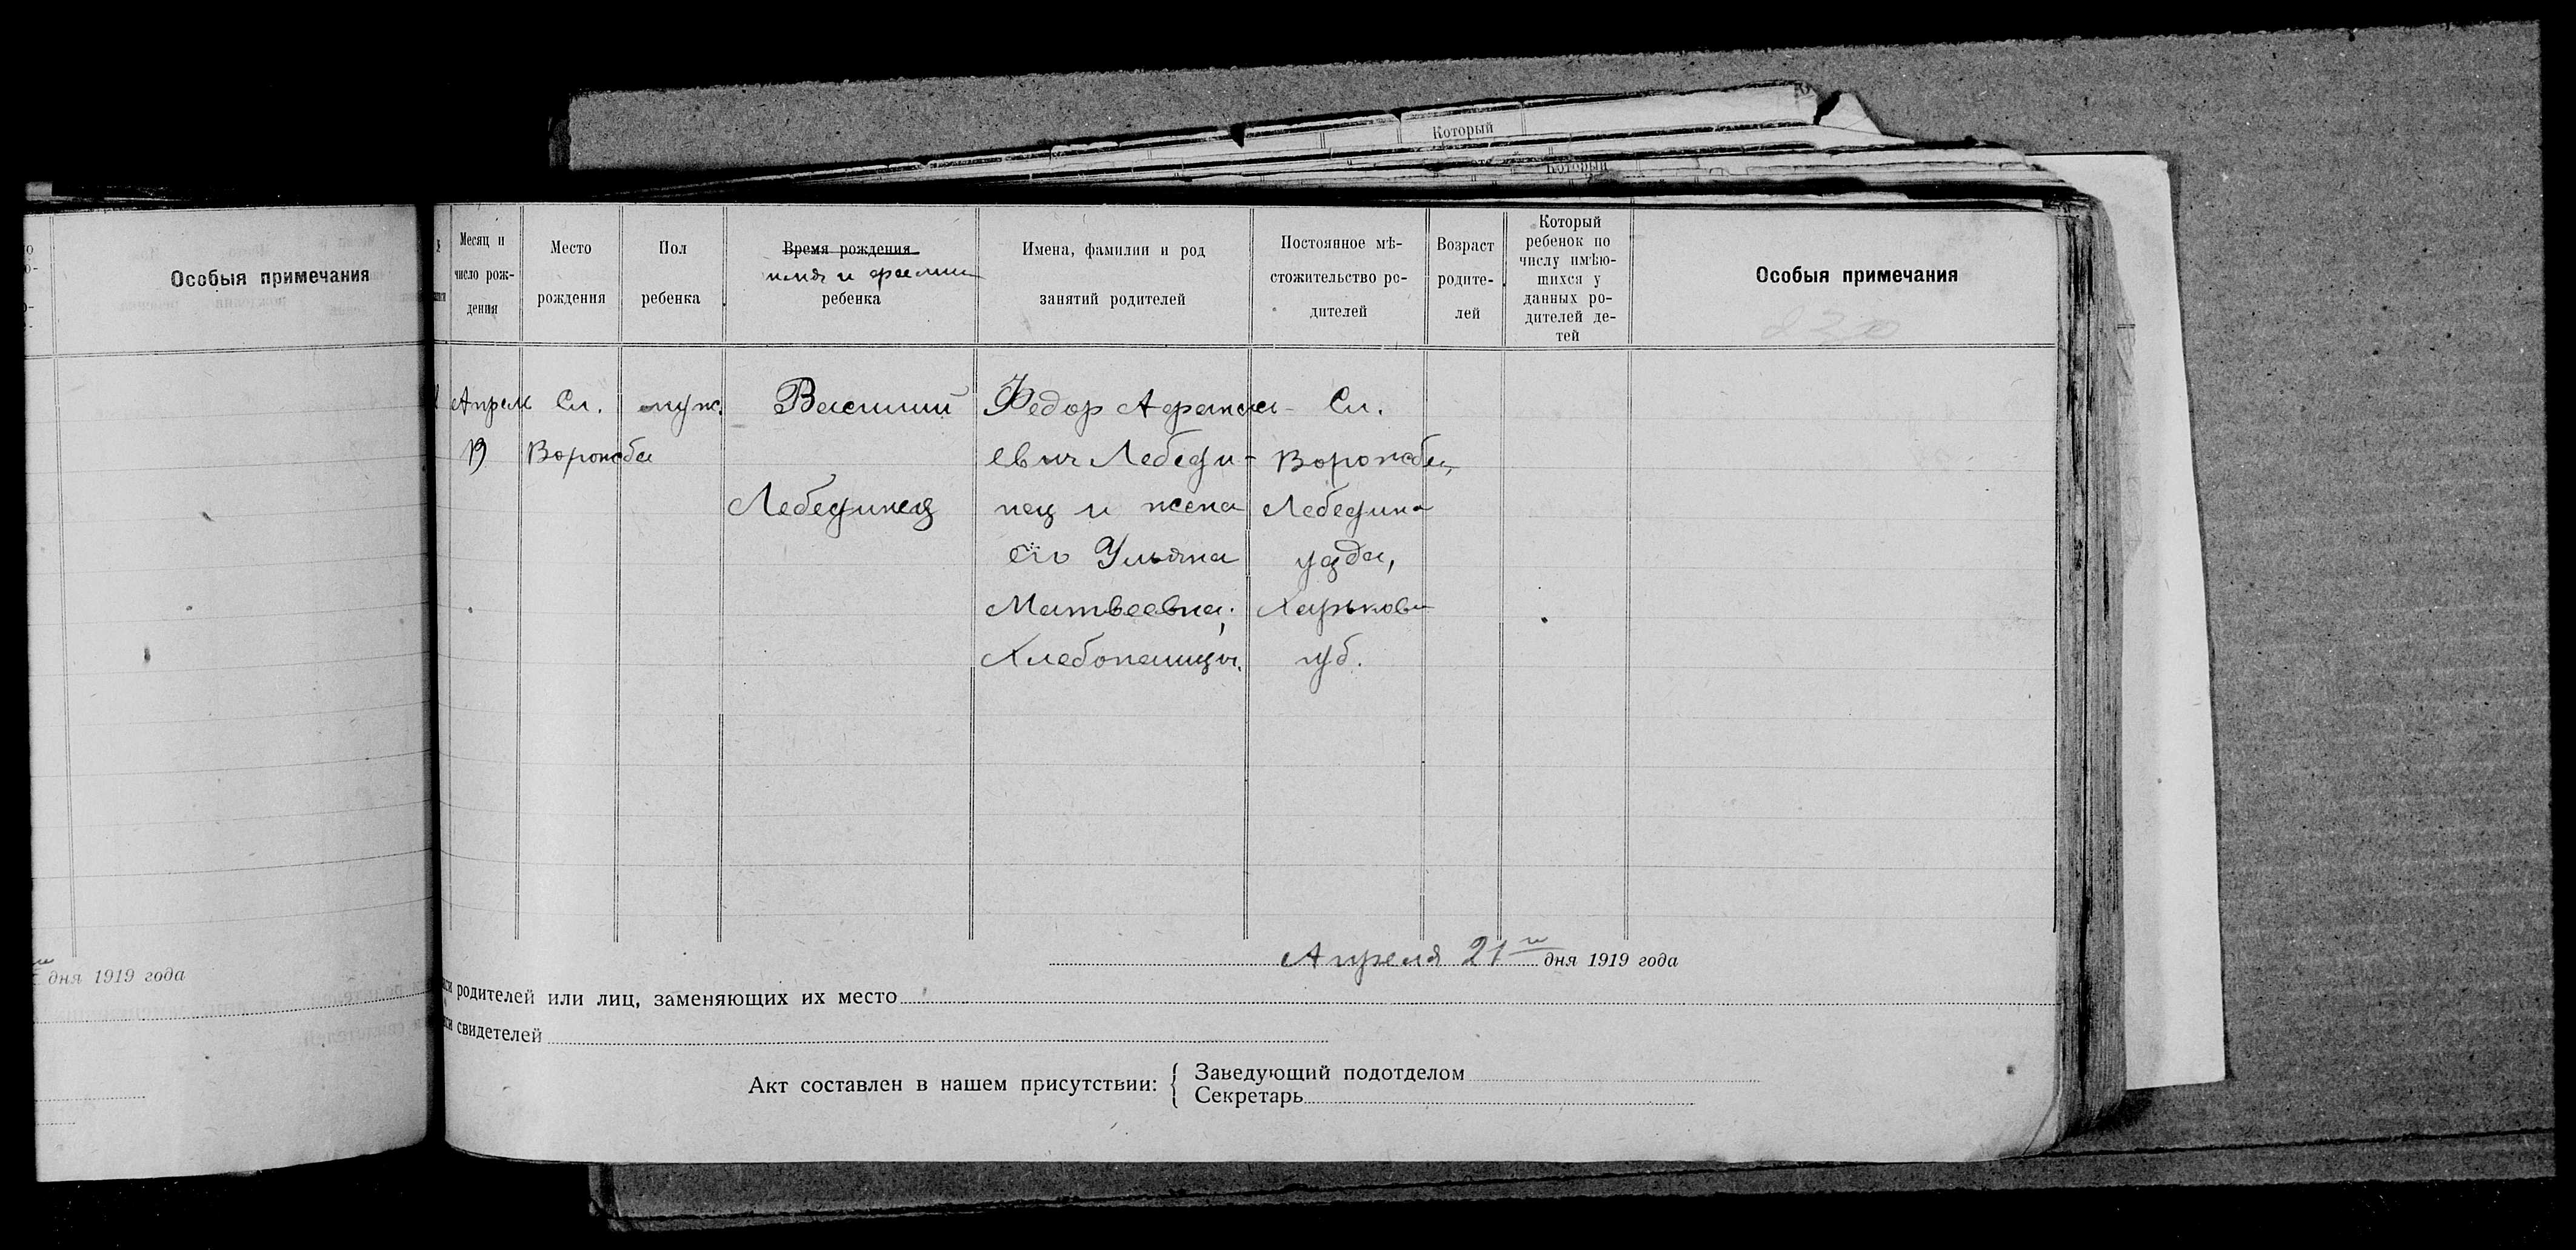 Который
Который
Особыя примечания
дня 1919 года
Месяц и
число рож-
дения
Место
рождения
Пол
ребенка
Время рождения
имя и фамил
ребенка
Имена, фамилии и род
занятий родителей
Постоянное мѣ-
стожительство ро-
дителей
Возраст
родите-
лей
Который
ребенок по
числу имѣю-
щихся у
данных ро-
дителей де-
тей
Особыя примечания
Апреля
19
Сл.
Ворожба
муж.
Василий
Лебединец
Федор Афанаси-
евич Лебеди-
нец и жена
его Ульяна
Матвеевна;
Хлебопашцы.
Сл.
Ворожба,
Лебедин-
уезда,
Харьков-
губ.
Апреля 21го дня 1919 года
родителей или лиц, заменяющих их место
свидетелей
Акт составлен в нашем присутствии:
Заведующий подотделом
Секретарь